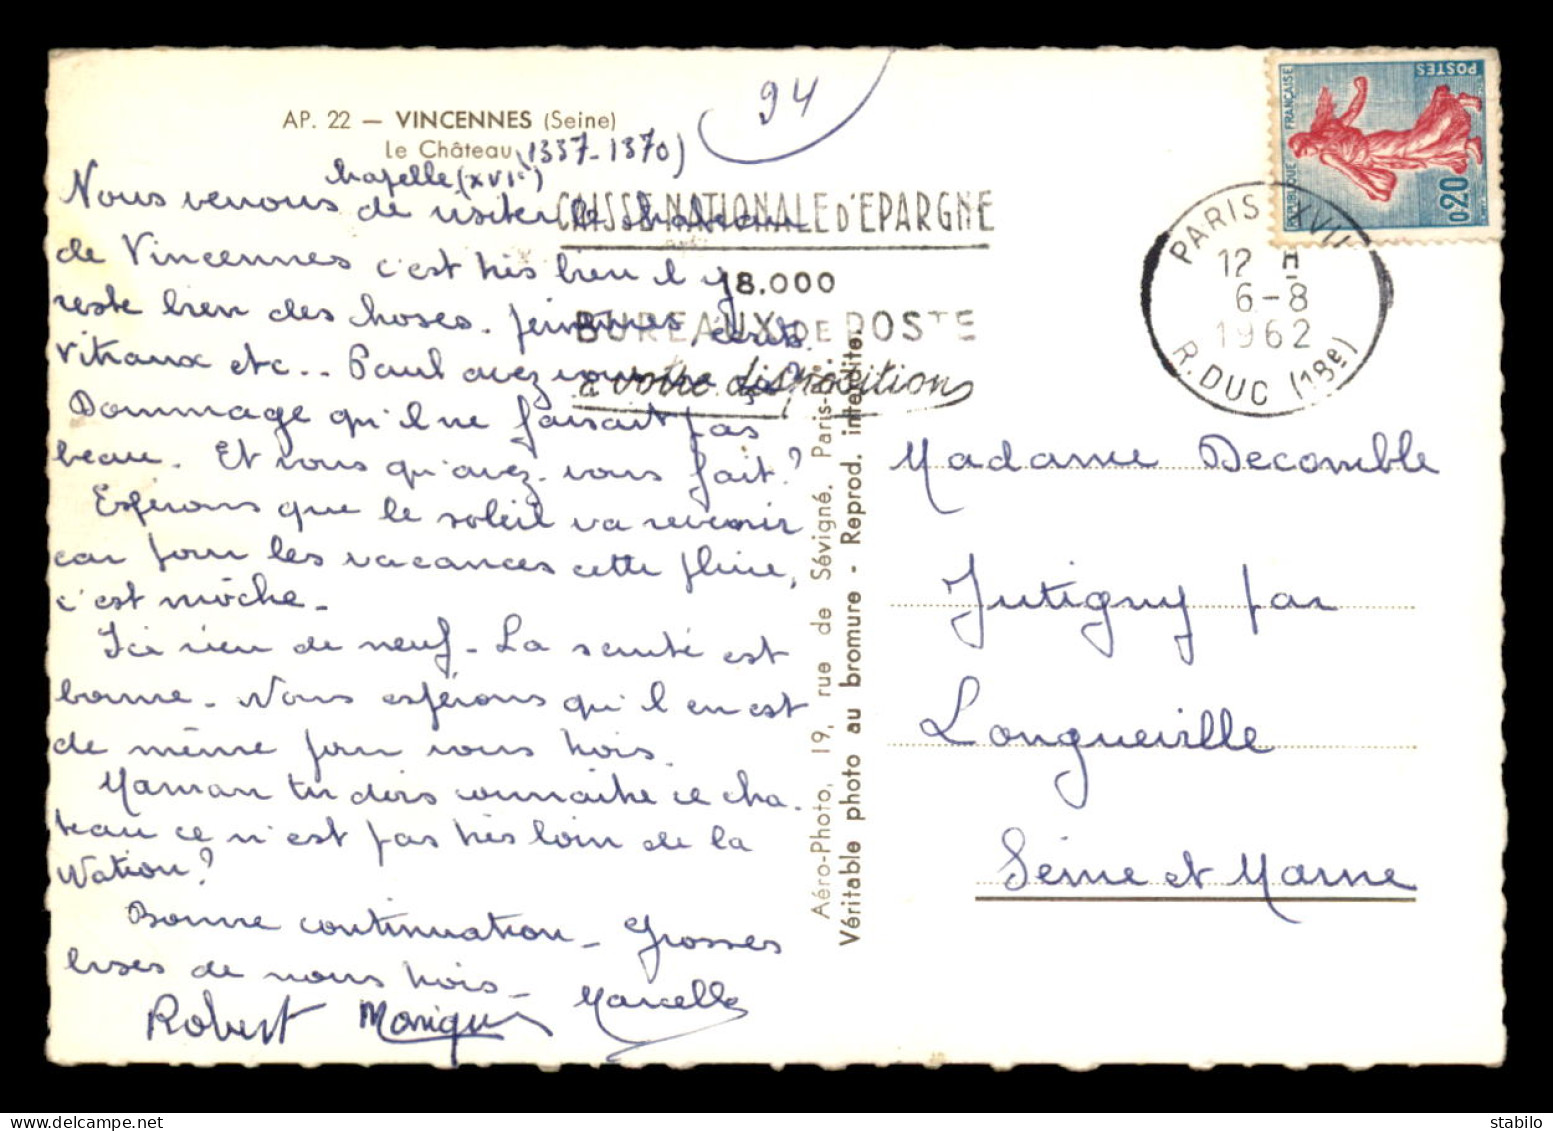 94
AP. 22 — VINCENNES (Seine)
Le Château (1337-1370)
Chapelle (XVIe)
Nous venons de visiter le chateau
de Vincennes c'est très bien il y
reste bien des choses. peintures, écrits
vitraux etc.. Paul avez vous vu ça?
Dommage qu'il ne faisait pas
beau. Et vous qu'avez-vous fait?
Espérons que le soleil va revenir
car pour les vacances cette pluie,
c'est môche.
Ici rien de neuf. La santé est
bonne. Nous espérons qu'il en est
de même pour vous trois.
Maman tu dois connaitre ce cha-
teau ce n'est pas très loin de la
Nation?
Bonne continuation. Grosses
bises de nous trois.
Robert Monique Marcelle
CAISSE NATIONALE D'EPARGNE
18.000
BUREAUX DE POSTE
à votre disposition
Aéro-Photo, 19, rue de Sévigné. Paris-
Véritable photo au bromure - Reprod. interdite.
PARIS XVII
12 H
6-8
1962
R. DUC (18e)
REPUBLIQUE FRANÇAISE
POSTES
0,20
Madame Decomble
Jutigny par
Longueville
Seine et Marne
delcampe.net
stabilo